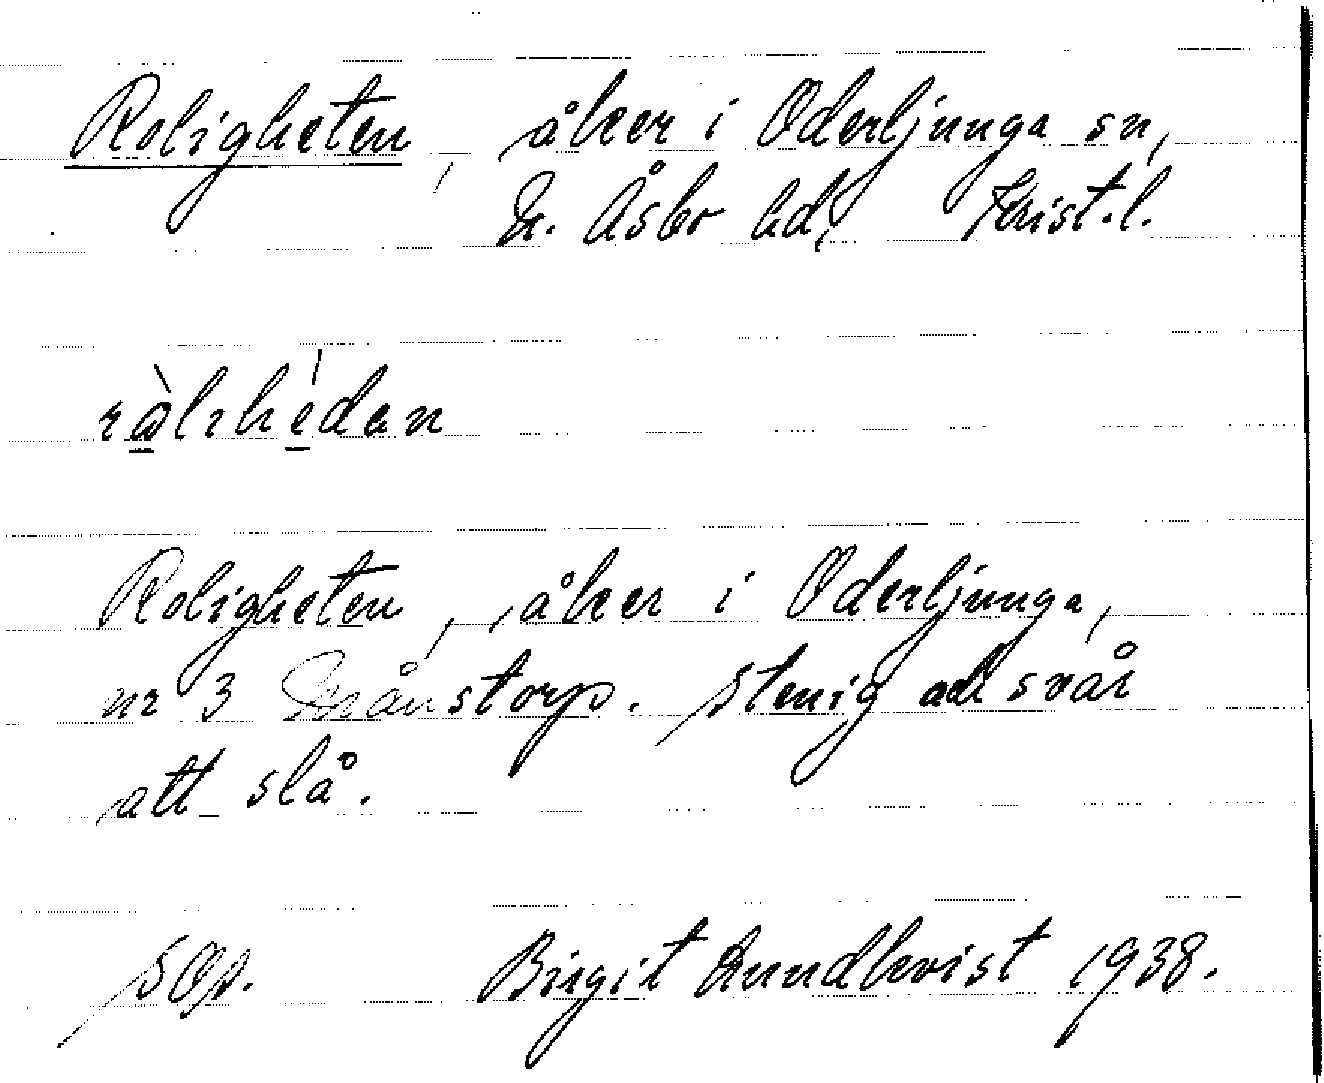 Roligheten, åker i Oderljunga sn,
N. Åsbo hd, Krist.l.
Roligheten, åker i Oderljunga,
nr 3 Månstorp. Stenig och svår
att slå.
Birgit Lundkvist 1938.